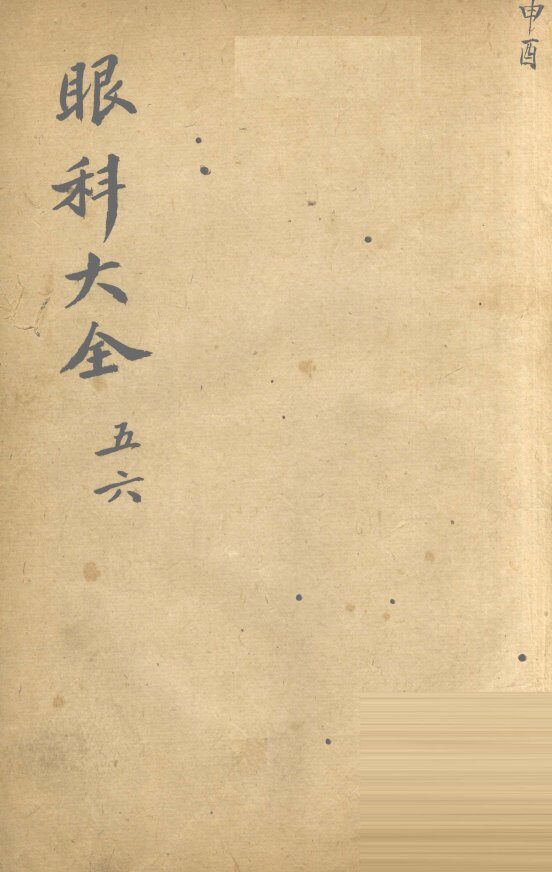 申酉
眼科大全
五六